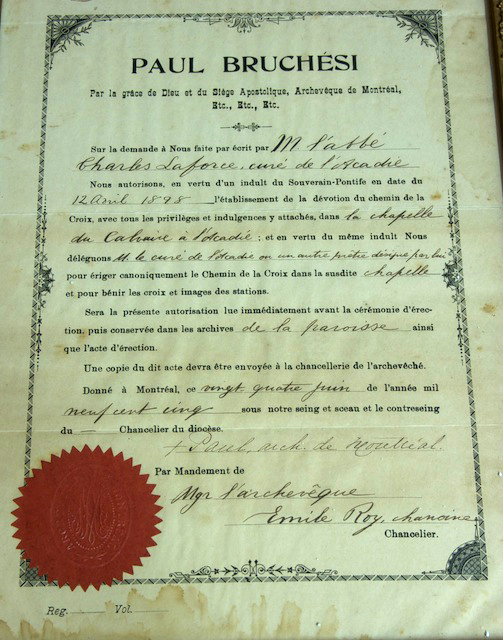 PAUL BRUCHÉSI
Par la grâce de Dieu et du Siège Apostolique, Archevêque de Montréal,
Etc., Etc., Etc.
Sur la demande à Nous faite par écrit par M. l'abbé
Charles Laforce, curé de l'Acadie
Nous autorisons, en vertu d'un indult du Souverain-Pontife en date du
12 Avril 1898 l'établissement de la dévotion du chemin de la
Croix, avec tous les privilèges et indulgences y attachés, dans la chapelle
du Calvaire à l'Acadie ; et en vertu du même indult Nous
déléguons M. le curé de l'Acadie ou un autre prêtre désigné par lui
pour ériger canoniquement le Chemin de la Croix dans la susdite chapelle
et pour bénir les croix et images des stations.
Sera la présente autorisation lue immédiatement avant la cérémonie d'érec-
tion, puis conservée dans les archives de la paroisse ainsi
que l'acte d'érection.
Une copie du dit acte devra être envoyée à la chancellerie de l'archevêché.
Donné à Montréal, ce vingt quatre juin de l'année mil
neuf cent cinq sous notre seing et sceau et le contreseing
du — Chancelier du diocèse.
+ Paul, arch. de Montréal.
Par Mandement de
Mgr l'archevêque
Emile Roy, chanoine
Chancelier.
Reg. Vol.